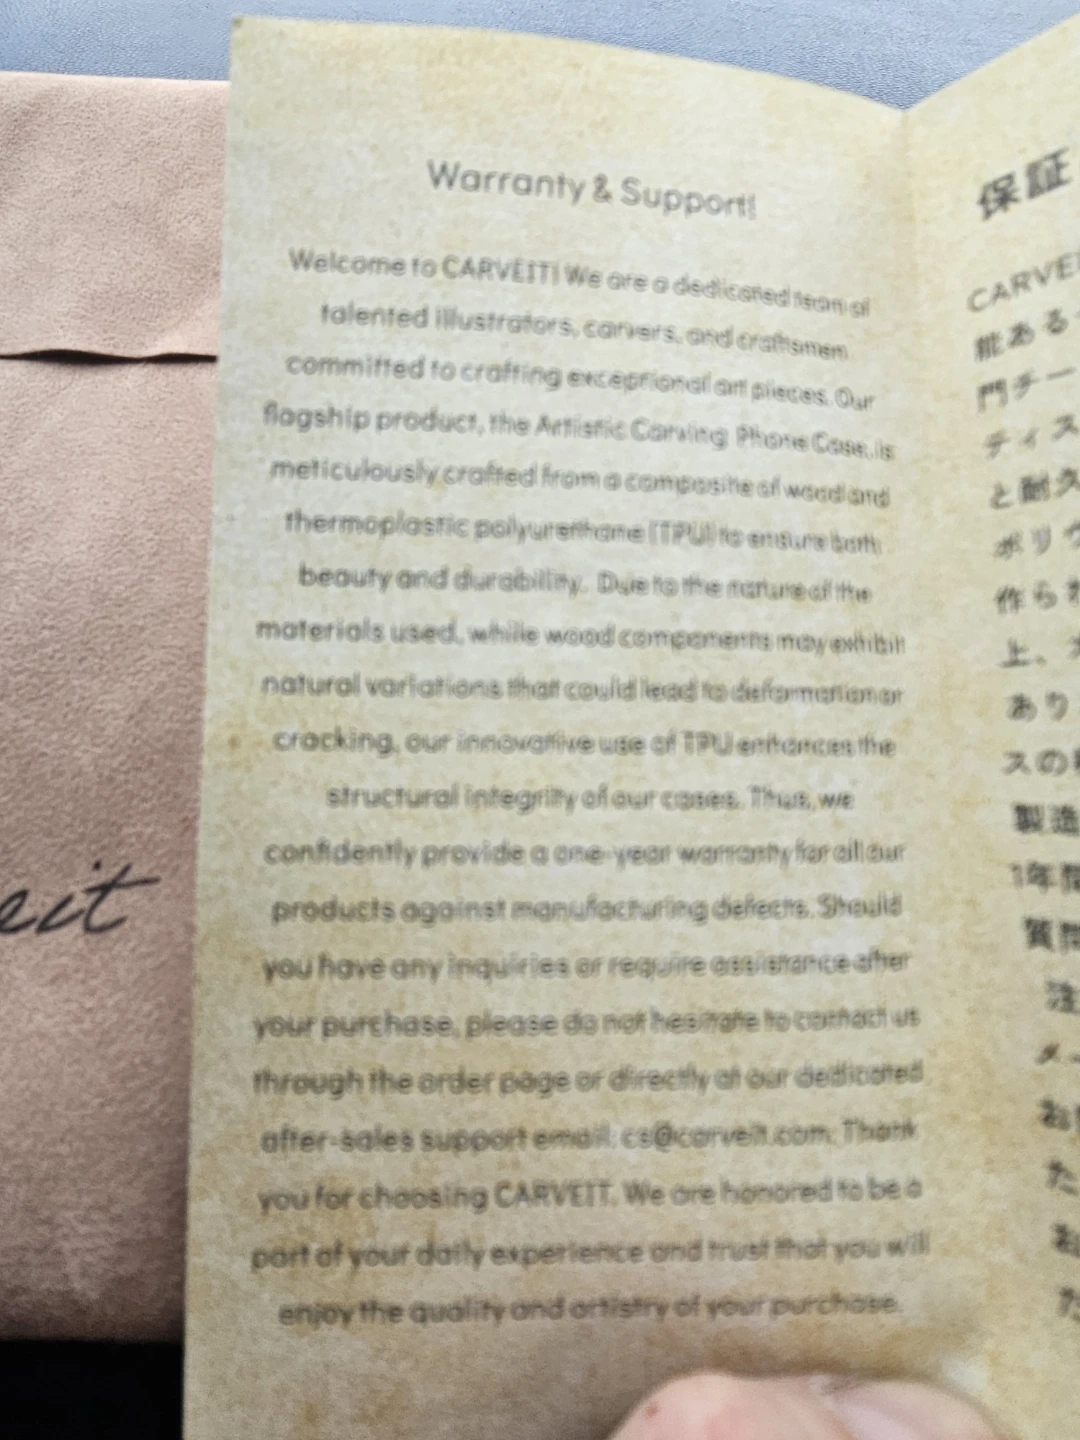 Warranty & Support!
Welcome to CARVEIT! We are a dedicated team of
talented illustrators, carvers, and craftsmen
committed to crafting exceptional art pieces. Our
flagship product, the Artistic Carving Phone Case, is
meticulously crafted from a composite of wood and
thermoplastic polyurethane (TPU) to ensure both
beauty and durability. Due to the nature of the
materials used, while wood components may exhibit
natural variations that could lead to deformation or
cracking, our innovative use of TPU enhances the
structural integrity of our cases. Thus, we
confidently provide a one-year warranty for all our
products against manufacturing defects. Should
you have any inquiries or require assistance after
your purchase, please do not hesitate to contact us
through the order page or directly at our dedicated
after-sales support email: cs@carveit.com. Thank
you for choosing CARVEIT. We are honored to be a
part of your daily experience and trust that you will
enjoy the quality and artistry of your purchase.
eit
保証
CARVE
能ある
門チー
ティス
と耐久
ポリウ
作られ
上、
あり
スの
製造
1年間
質問
注
メー
お
た
お
た